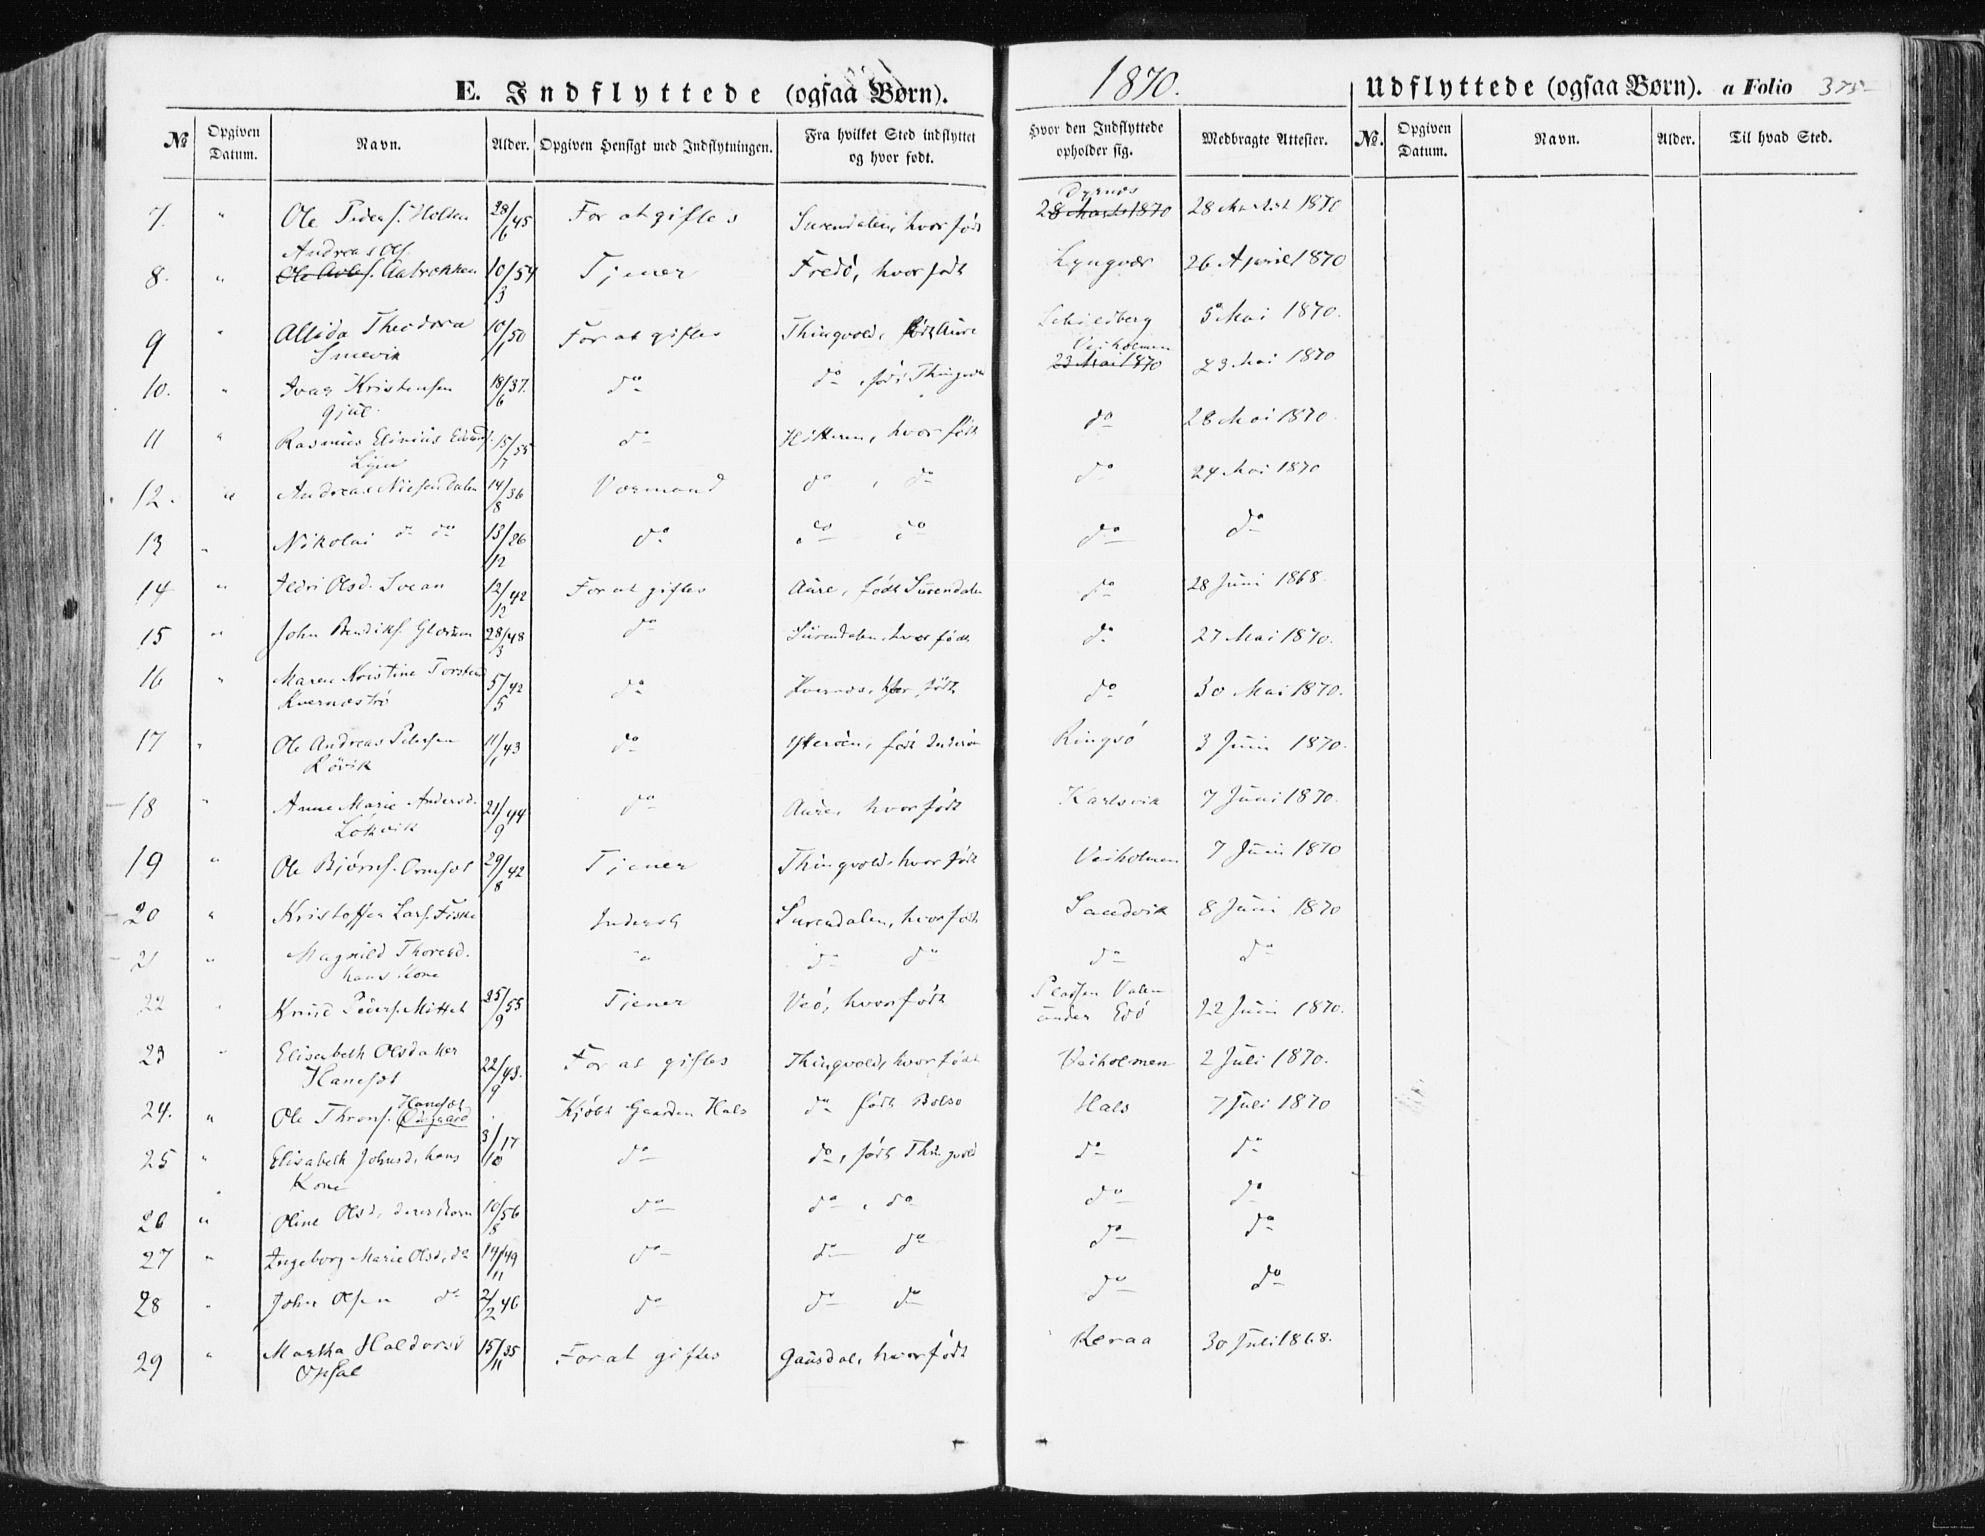 E. Indflyttede (ogsaa Børn).
1870.
Udflyttede (ogsaa Børn). a Folio 375
№ Opgiven Datum. Navn. Alder. Opgiven Hensigt med Indflytningen. Fra hvilket Sted indflyttet og hvor født. Hvor den Indflyttede opholder sig. Medbragte Attester. №. Opgiven Datum. Navn. Alder. Til hvad Sted.
7. " Ole Peders. Holten 28/6 45 For at giftes Surendalen, hvor født Dyrnes 28 Marts 1870 28 Marts 1870
8. " Andreas Ols. Aabrekken 10/3 54 Tjener Fredø, hvor født Lyngvær 26 April 1870
9 " Theodora Smevik 10/1 50 For at giftes Thingvold, født Aure Schiedberg 5 Mai 1870.
10. " Ivar Kristensen Gjul. 18/6 37. do do, født Thingvold Veiholmen 23 Mai 1870 23 Mai 1870
11 " Rasmus Elinius 15/7 55 do Hitteren, hvor født do 28 Mai 1870.
12. " Andreas Nielsen Dalen 14/8 36 Vormand do, do do 24 Mai 1870
13 " Nikolai do do 13/12 26 do do do do do
14 " Ildri Olsd. Svean 12/12 42 For at giftes Aure, født Surendalen do 28 Juni 1868.
15 " John Bendiks. Glærum 28/3 48 do Surendalen, hvor født do 27 Mai 1870.
16 " Maren Kristine Torstensd Kvernæstrø 5/5 42 do Kvernes, hvor født do 30 Mai 1870.
17 " Ole Andreas Petersen Røvik 11/1 43 do Ytterøen, født Inderøen Ringsø 3 Juni 1870.
18 " Anne Marie Andersd. Løkvik 21/9 44 do Aure, hvor født Karlsvik 7 Juni 1870.
19 " Ole Bjørns. Ormset 29/8 42 Tjener Thingvold, hvor født Veiholmen 7 Juni 1870
20 " Kristoffer Lars. Fiske Inderst Surendalen, hvor født Sandvik 8 Juni 1870
21 " Magnild Thoresd. hans Kone " do do do do
22 " Knud Peders. Mittet 25/9 55 Tjener Veø, hvor født Pladsen Valen under Edø 22 Juni 1870.
23 " Elisabeth Olsdatter Haneset 22/9 43. For at giftes Thingvold, hvor født Veiholmen 2 Juli 1870.
24. " Ole Throns. Hanesæt Ødegaard Kjøbt Gaarden Hals do født Bolsø Hals 7 Juli 1870
25 " Elisabeth Johnsd, hans Kone 3/10 17 do do, født Thingvold do do
26 " Oline Olsd, deres Barn 10/8 56 do do, do do do
27 " Ingeborg Marie Olsd, do 14/11 49 do do do do do
28 " John Olsen do 2/2 46 do do do do do
29 " Martha Haldorsd Opsal 15/11 35 For at giftes Gausdal, hvor født Reraa 30 Juli 1868.